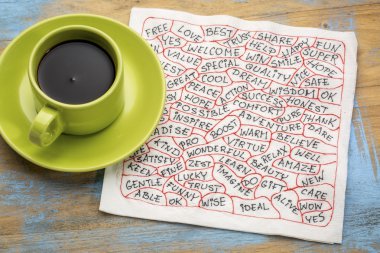 FREE LOVE BEST TRUST SHARE HAPPY FUN
YES WELCOME HELP SUPER
VALUE SPECIAL WIN SMILE
GREAT DREAM QUALITY NICE SAFE
COOL WISDOM OK
PEACE HOPE SUCCESS HONEST
JOY COMFORT THANK
POSSIBLE ADVENTURE DARE
INSPIRE WARM BELIEVE
PRO BOOST VIRTUE WELL
KIND WONDERFUL RELAX AMAZE
FINE ZEST LEARN EASY NEW
KEEN LUCKY IMAGINE GIFT CARE
GENTLE FUNNY TRUST ALIVE WOW
ABLE OK WISE IDEAL YES